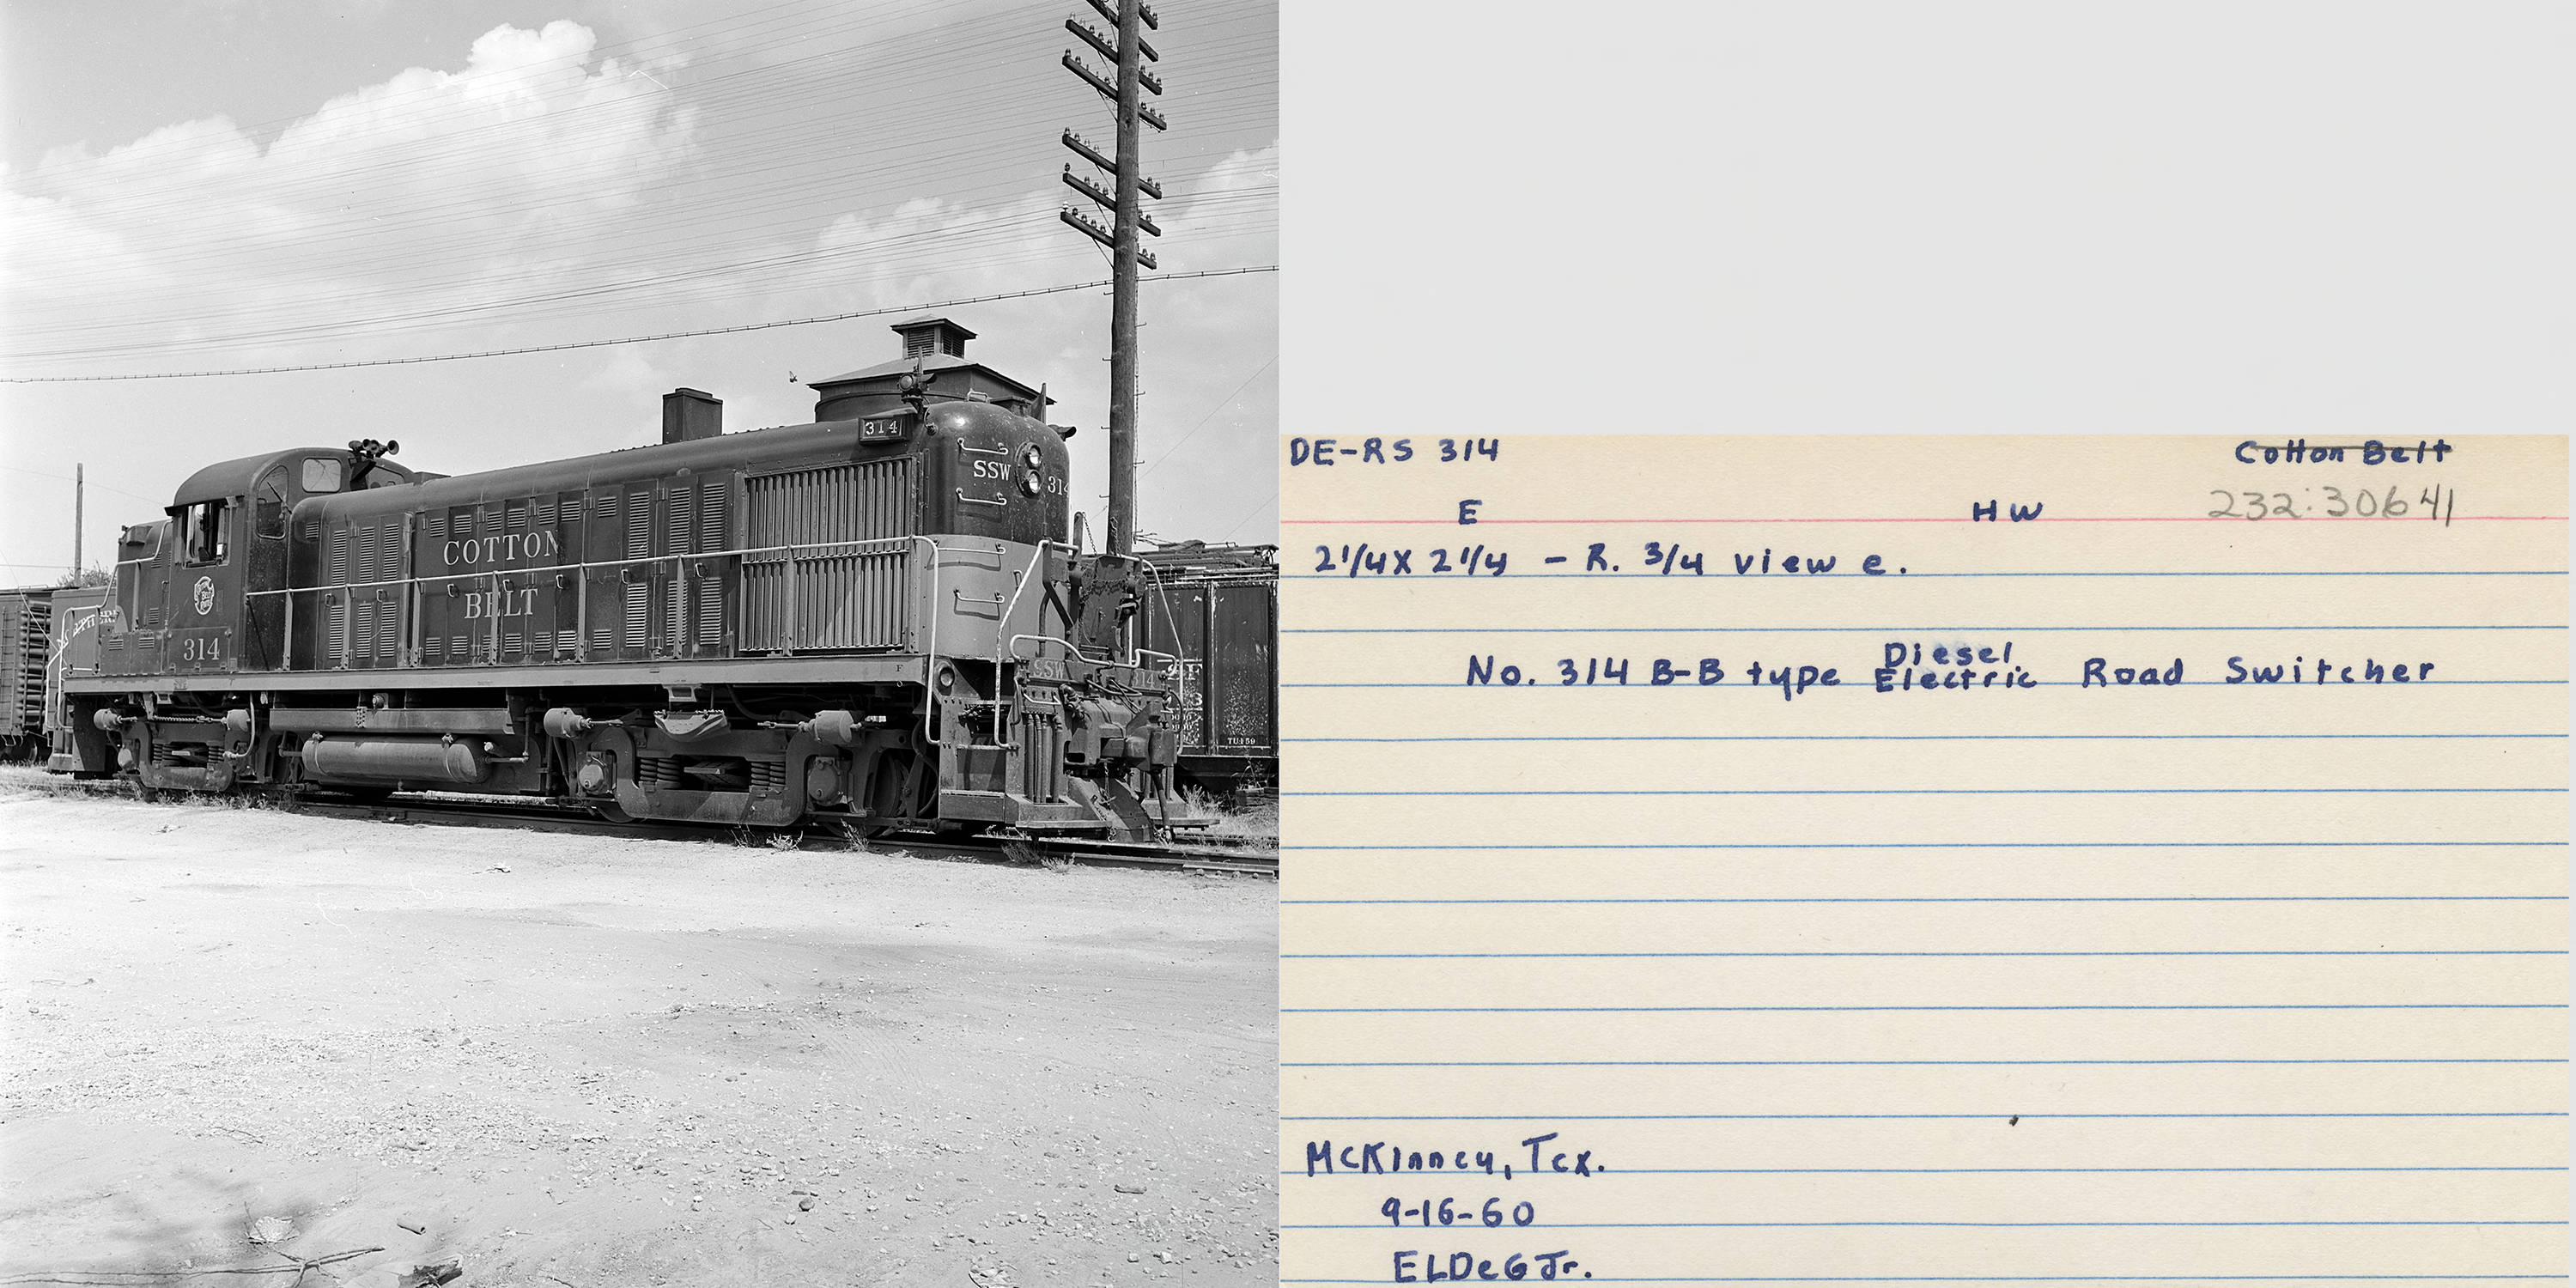 314
SSW
314
COTTON
BELT
314
F
SSW 314
TU159
DE-RS 314
Cotton Belt
E
HW
232:30641
2 1/4 X 2 1/4 - R. 3/4 view e.
No. 314 B-B type Diesel Electric Road Switcher
McKinney, Tex.
9-16-60
ELDeG Jr.